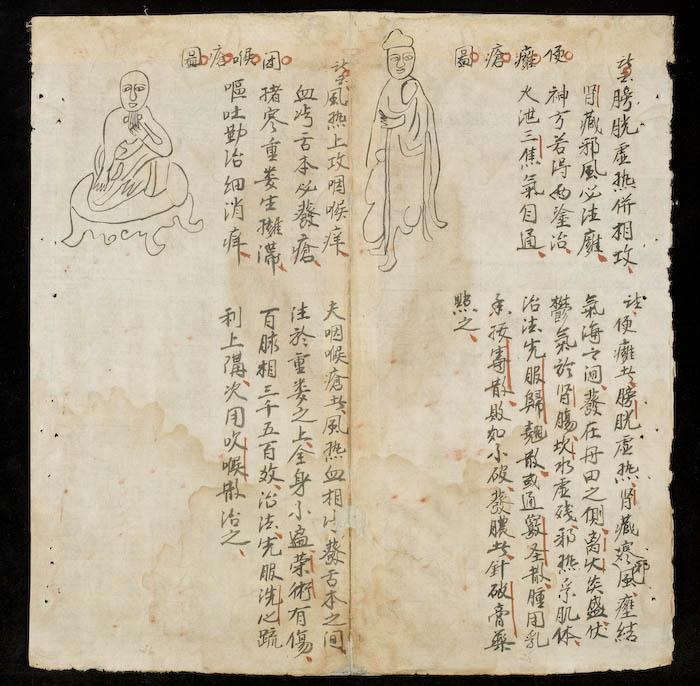 便癰瘡圖
訣膀胱虛熱併相攻
腎藏邪風必注癰
神方若得西塗治
火泄三焦氣自通
訣便癰者膀胱虛熱腎藏寒邪風壅結
氣海之間發在丹田之側離火炎盛伏
鬱氣於腎腸坎水虛殘邪熱乘肌体
治法先服歸翹散或通竅圣散腫用乳
香按毒散敗如不破發膿者針破膏藥
點之
閉喉瘡圖
訣風热上攻咽喉痒
血冯舌本必發瘡
搐寒重娄生擁滯
嘔吐勤治細消痒
夫咽喉瘡者風热血相注發舌本之间
注於重娄之上全身不遍荣術有傷
百脉相三千五百效治法先服洗心疏
利上隔次用吹喉散治之